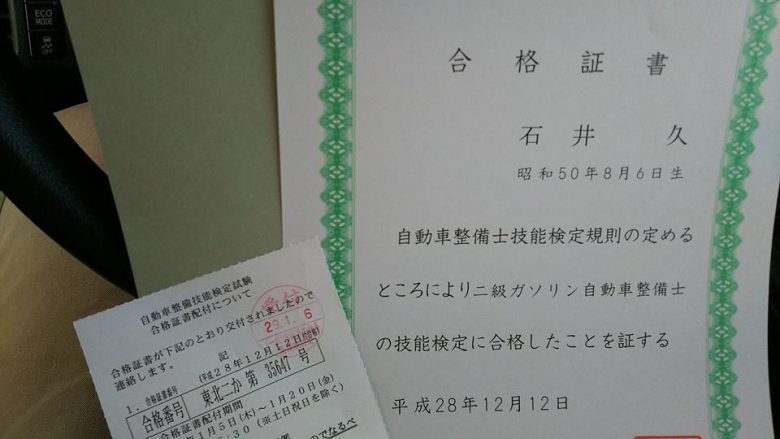 ECO
MODE
OFF
合格証書
石井 久
昭和50年8月6日生
自動車整備士技能検定規則の定める
ところにより二級ガソリン自動車整備士
の技能検定に合格したことを証する
平成28年12月12日
自動車整備技能検定試験
合格証書配付について
受付
29.1.6
合格証書が下記のとおり交付されましたので
連絡します。
記
(平成28年12月12日付)
1.合格証書番号
合格番号 東北二か 第 35647 号
合格証書配付期間
1月5日(木)~1月20日(金)
:30 (※土日祝日を除く)
のでなるべ